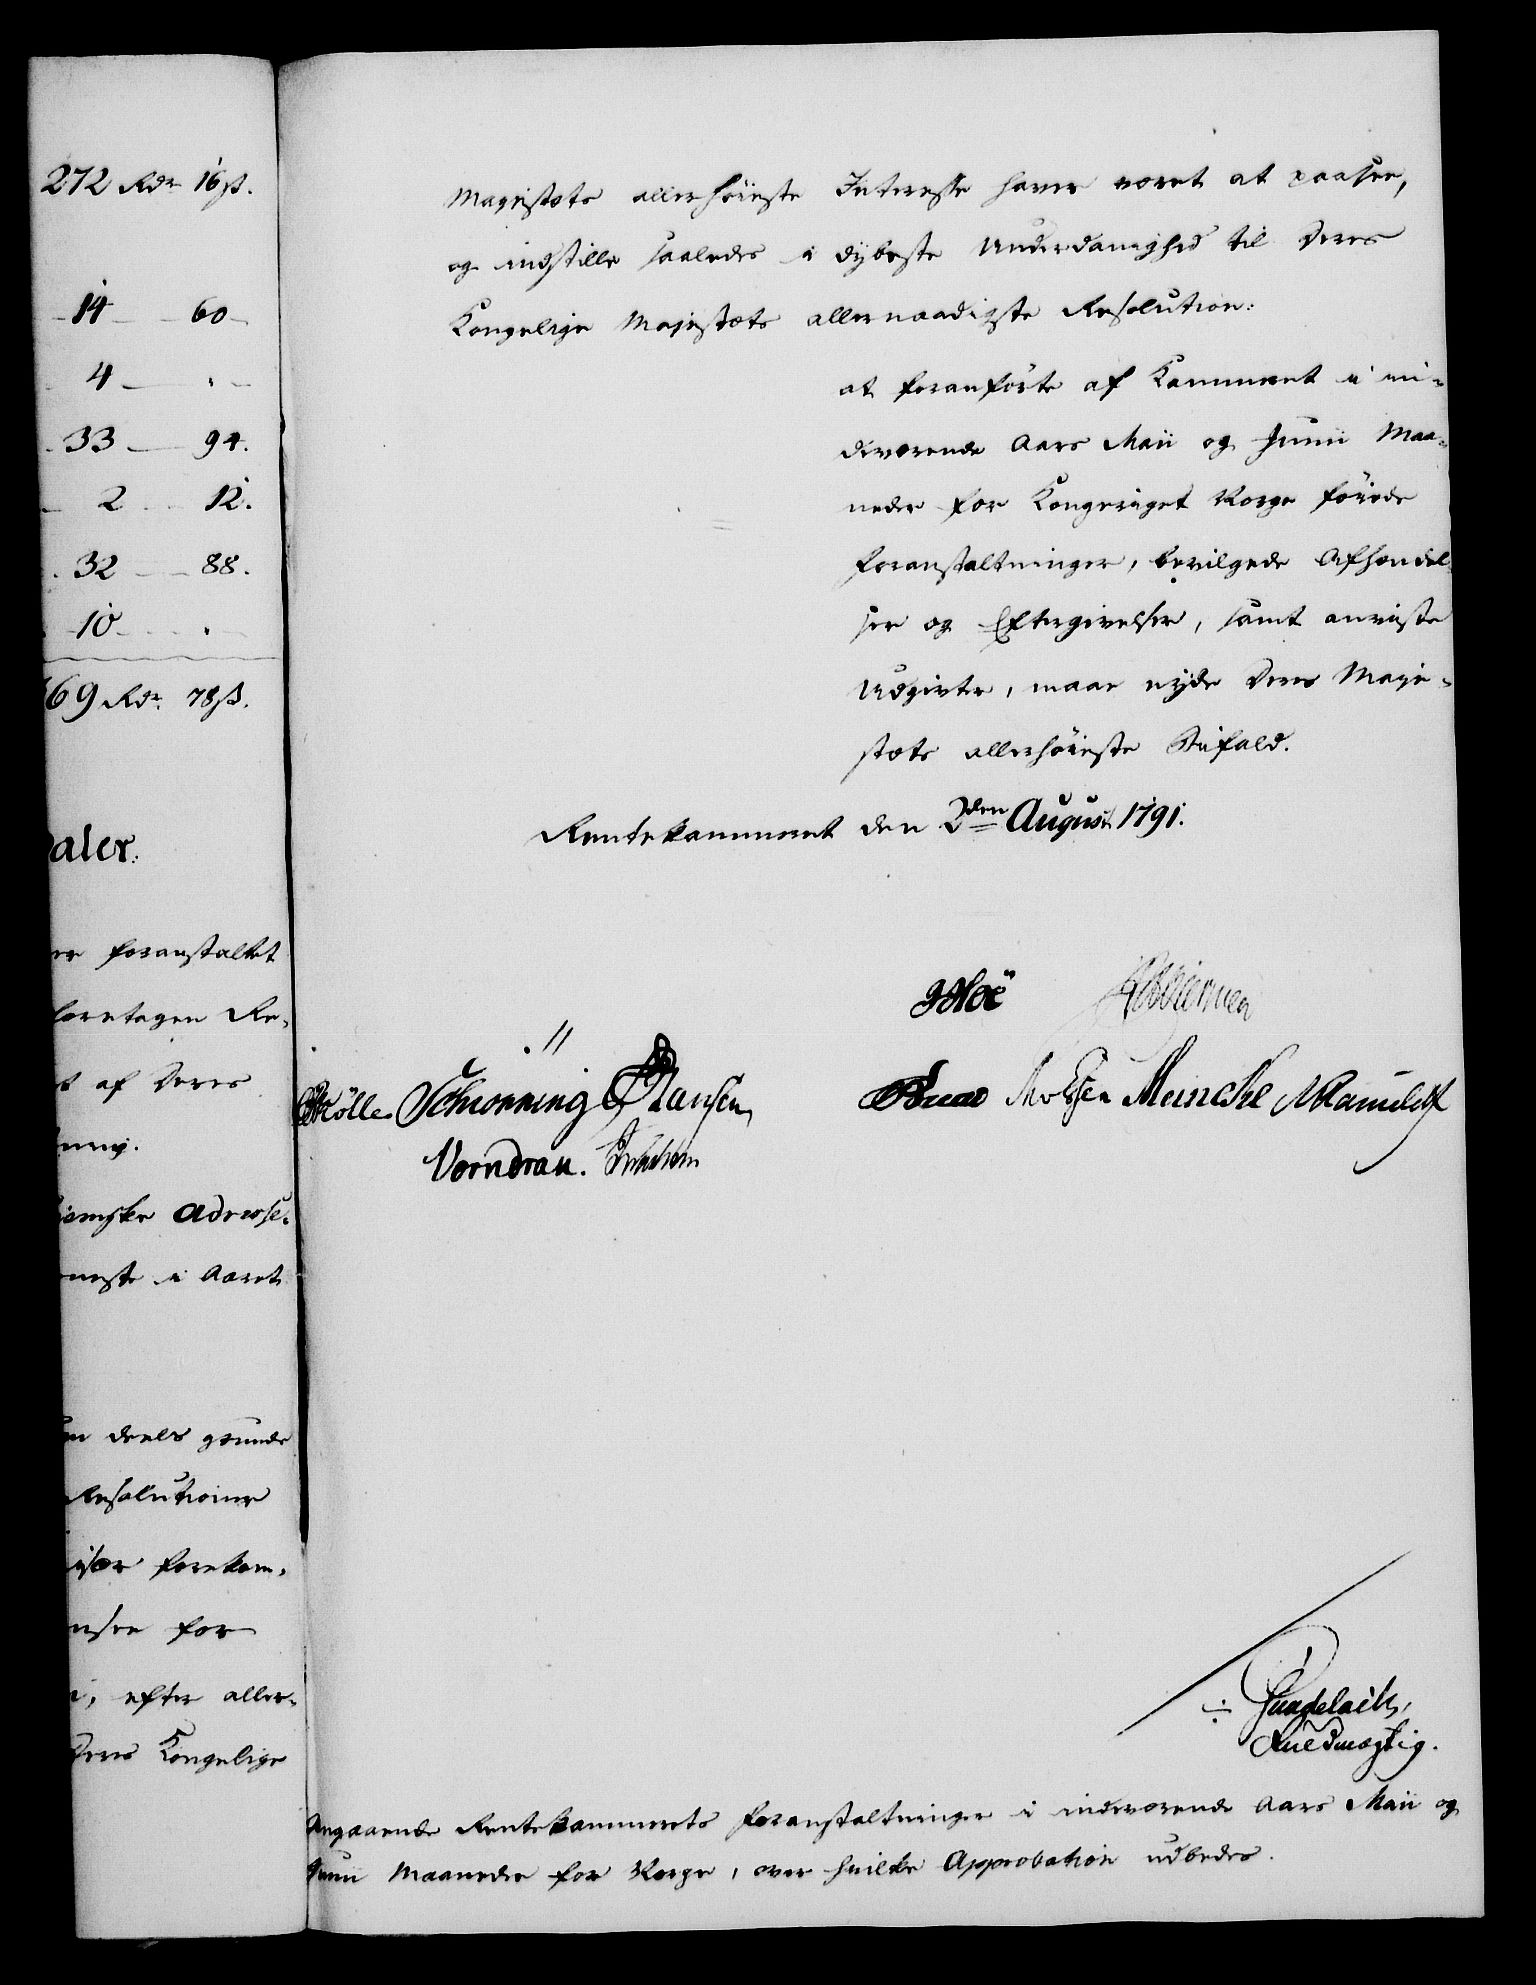 272 Rdr 16 ß.
14 60
4 "
33 94.
2 12.
32 88.
10 "
69 Rdr 78 ß.
aler.
foranstaltet
foretagen Re-
af Deres
Adresse-
neste i Aaret
deels grunde
Resolutioner
forekom-
for
efter aller-
Deres Kongelige
Majestæts allerhöieste Interesse haver været at paasee,
og indstille saaledes i dybeste Underdanighed til Deres
Kongelige Majestæts allernaadigste Resolution:
at foranförte af Kammeret i in-
deværende Aars Maii og Junii Maa-
neder for Kongeriget Norge föiede
Foranstaltninger, bevilgede Afhændel-
ser og Eftergivelser, samt anviste
Udgivter, maae nyde Deres Maje-
stæts allerhöieste Bifald.
Rentekammeret den 2den August 1791.
Schronning Hansen
Meincke
Vorndran.
Fuldmægtig.
Angaaende Rentekammerets Foranstaltninger i indeværende Aars Maii og
Junii Maaneder for Norge, over hvilke Approbation udbedes.